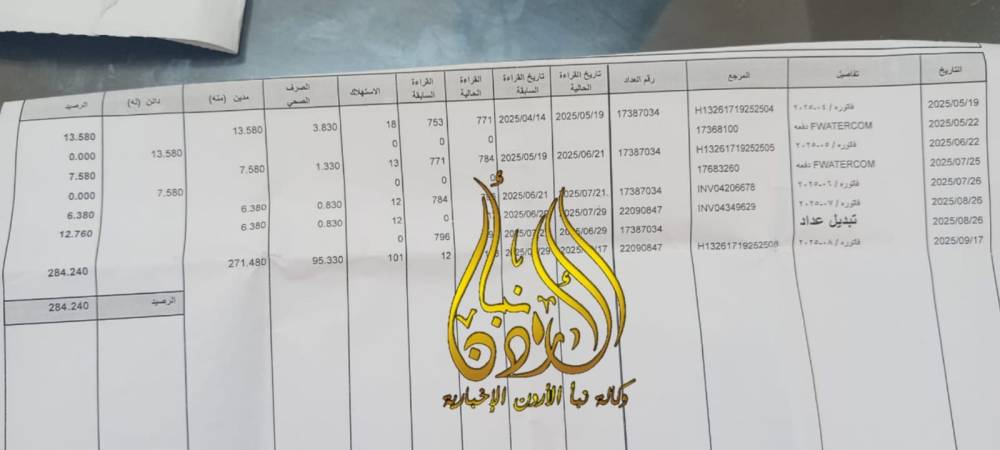 التاريخ تفاصيل المرجع رقم العداد تاريخ القراءة الحالية تاريخ القراءة السابقة القراءة الحالية القراءة السابقة الاستهلاك الصرف الصحي مدين (منه) دائن (له) الرصيد
2025/05/19 فاتوره / ٠٤-٢٠٢٥ H13261719252504 17387034 2025/05/19 2025/04/14 771 753 18 3.830 13.580 13.580
2025/05/22 FWATERCOM دفعه 17368100 0 0 13.580 0.000
2025/06/22 فاتوره / ٠٥-٢٠٢٥ H13261719252505 17387034 2025/06/21 2025/05/19 784 771 13 1.330 7.580 7.580
2025/07/25 FWATERCOM دفعه 17683260 0 0 7.580 0.000
2025/07/26 فاتوره / ٠٦-٢٠٢٥ INV04206678 17387034 2025/07/21 2025/06/21 784 12 0.830 6.380 6.380
2025/08/26 فاتوره / ٠٧-٢٠٢٥ INV04349629 22090847 2025/07/29 0 12 0.830 6.380 12.760
2025/08/26 تبديل عداد 17387034 2025/06/29 796 0
2025/09/17 فاتوره / ٠٨-٢٠٢٥ H13261719252508 22090847 12 101 95.330 271.480 284.240
الرصيد 284.240
نبأ الأردن
وكالة نبأ الأردن الإخبارية